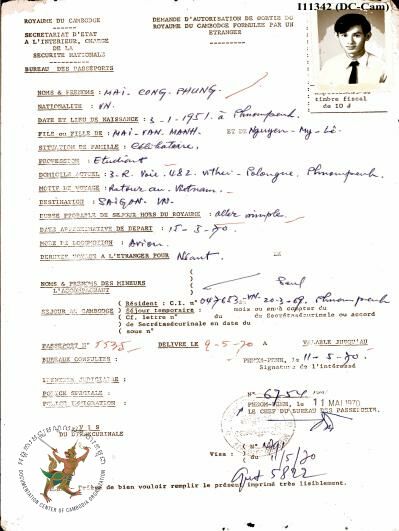 I11342 (DC-Cam)
ROYAUME DU CAMBODGE
SECRETARIAT D'ETAT
A L'INTERIEUR, CHARGE
DE LA
SECURITE NATIONALE
BUREAU DES PASSEPORTS
DEMANDE D'AUTORISATION DE SORTIE DU
ROYAUME DU CAMBODGE FORMULEE PAR UN
ETRANGER
timbre fiscal
de 10 ƌ
NOMS & PRENOMS : MAI - CONG - PHUNG.
NATIONALITE : VN.
DATE ET LIEU DE NAISSANCE : 3-1-1951. à Phnompenh
FILS ou FILLE DE : MAI-VAN-MANH - ET DE Nguyen-My-Lê.
SITUATION DE FAMILLE : Célibataire.
PROFESSION : Etudiant
DOMICILE ACTUEL : 3. R. Voie. 482. Phnompenh.
MOTIF DE VOYAGE : Retour au Vietnam.
DESTINATION : SAIGAN. VN.
DUREE PROBABLE DE SEJOUR HORS DU ROYAUME : aller simple.
DATE APPROXIMATIVE DE DEPART : 15-5-70.
MODE DE LOCOMOTION : Avion.
DERNIER VOYAGE A L'ETRANGER POUR Néant. DE
NOMS & PRENOMS DES MINEURS
L'ACCOMPAGNANT Seul
SEJOUR AU CAMBODGE
Résident : C.I. n° 047653-VN. 20-3-69. Phnompenh
Séjour temporaire : mois ou en à compter du
Cf. lettre n° du de Secrétsécurinale ou accord
de Secrétsécurinale en date du
sous n°
PASSEPORT N° 5535 DELIVRE LE 9-5-70 A VALABLE JUSQU'AU
BUREAUX CONSULTES :
PHNOM-PENH, le 11-5-70.
Signature de l'intéressé
IDENTITE JUDICIAIRE :
POLICE SPECIALE :
POLICE IMMIGRATION :
N° 6754
PHNOM-PENH, le 11 MAI 1970
LE CHEF DU BUREAU DES PASSEPORTS,
VIS
DU SECURINALE
Visa : ( N°
( du 11/5/70
5822
de bien vouloir remplir le présent imprimé très lisiblement.
DOCUMENTATION CENTER OF CAMBODIA ORGANIZATION